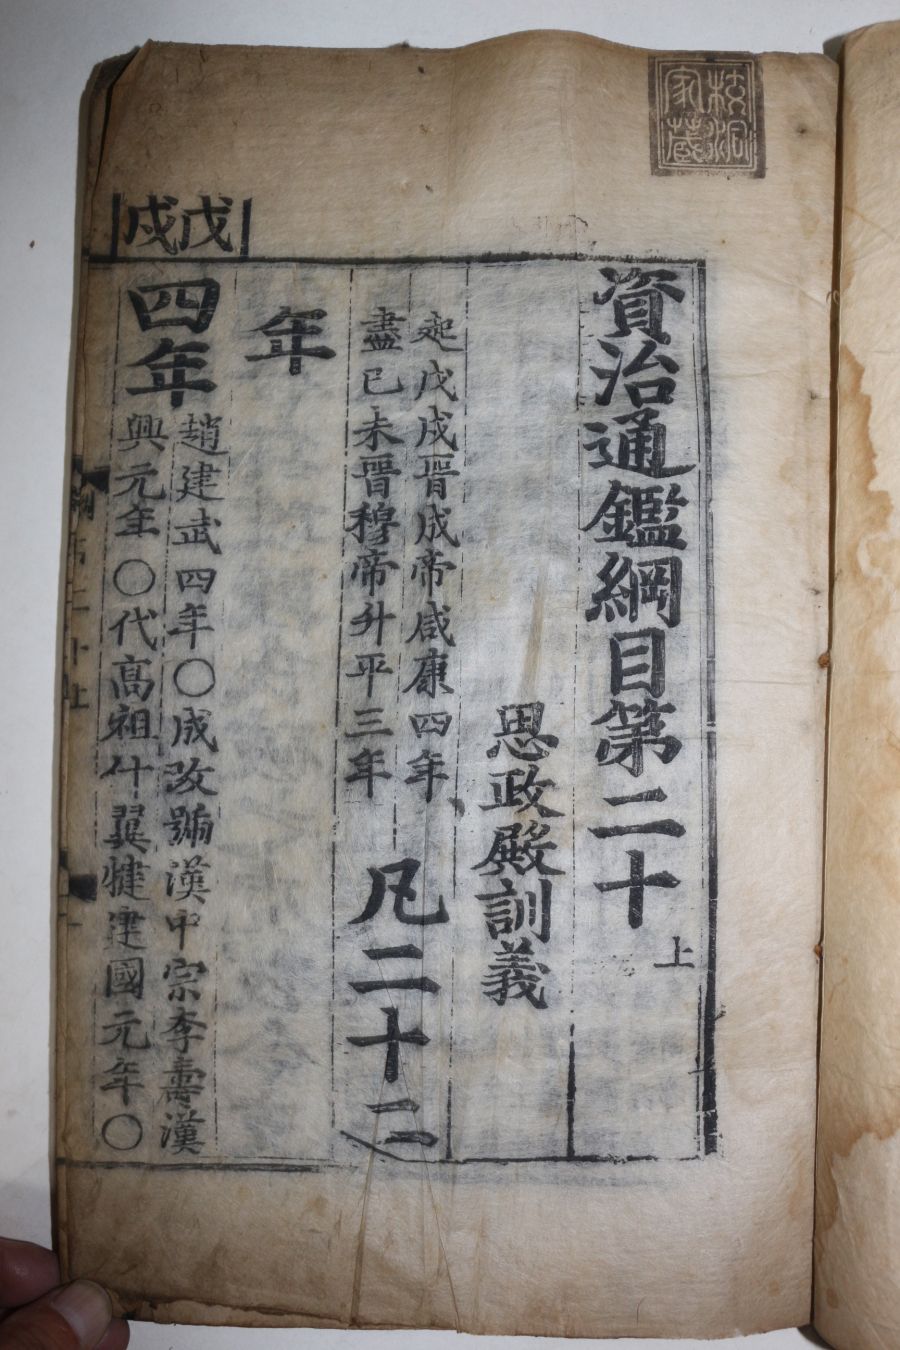 枝洞
家藏
資治通鑑綱目第二十上
思政殿訓義
起戊戌晉成帝咸康四年
盡己未晉穆帝升平三年
凡二十二
年
戊戌
四年
趙建武四年〇成改號漢中宗李壽漢
興元年〇代高祖什翼犍建國元年〇